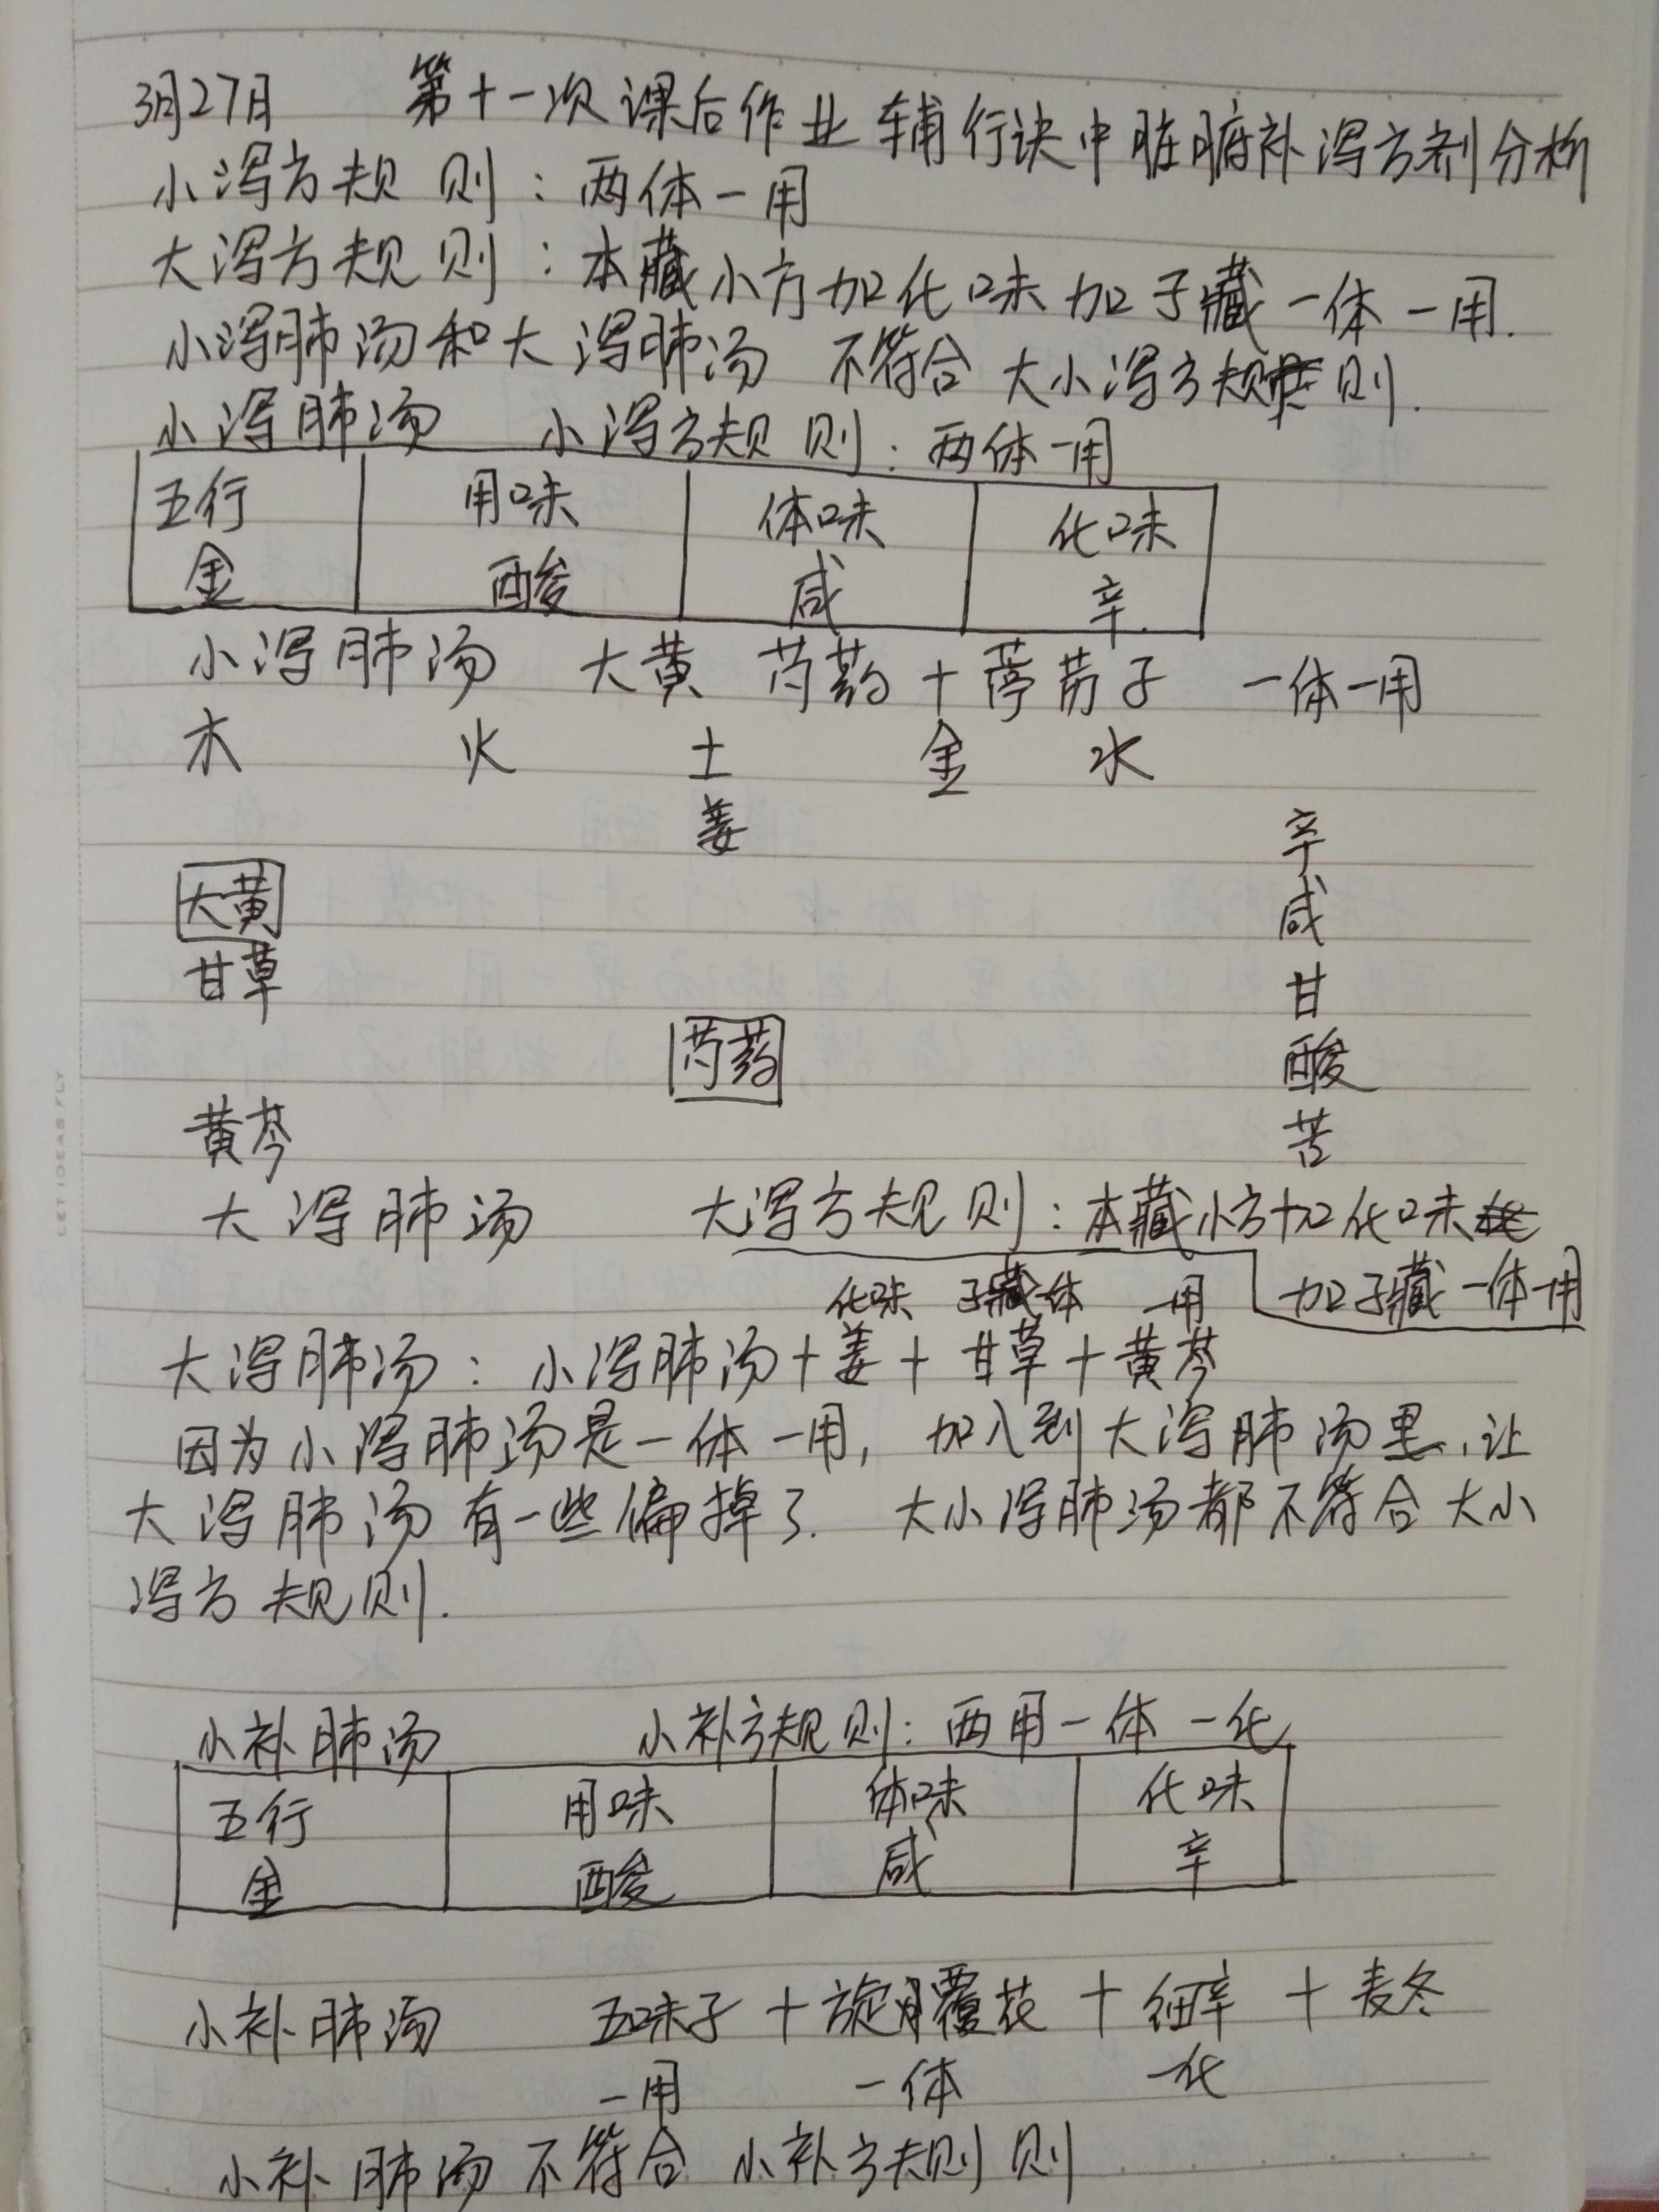 3月27日 第十一次课后作业 辅行诀中脏腑补泻方剂分析
小泻方规则：两体一用
大泻方规则：本藏小方加化味加子藏一体一用.
小泻肺汤和大泻肺汤 不符合大小泻方规则.
小泻肺汤 小泻方规则：两体一用
五行 用味 体味 化味
金 酸 咸 辛
小泻肺汤 大黄 芍药+葶苈子 一体一用
木 火 土 金 水
姜 辛
大黄 咸
甘草 甘
芍药 酸
黄芩 苦
大泻肺汤 大泻方规则：本藏小方加化味
化味 子藏一体 一用 加子藏一体一用
大泻肺汤：小泻肺汤+姜+甘草+黄芩
因为小泻肺汤是一体一用，加入到大泻肺汤里，让
大泻肺汤有一些偏掉了. 大小泻肺汤都不符合大小
泻方规则.
小补肺汤 小补方规则：两用一体一化
五行 用味 体味 化味
金 酸 咸 辛
小补肺汤 五味子+旋覆花+细辛+麦冬
一用 一体 一化
小补肺汤不符合小补方规则则
LET IDEAS FLY